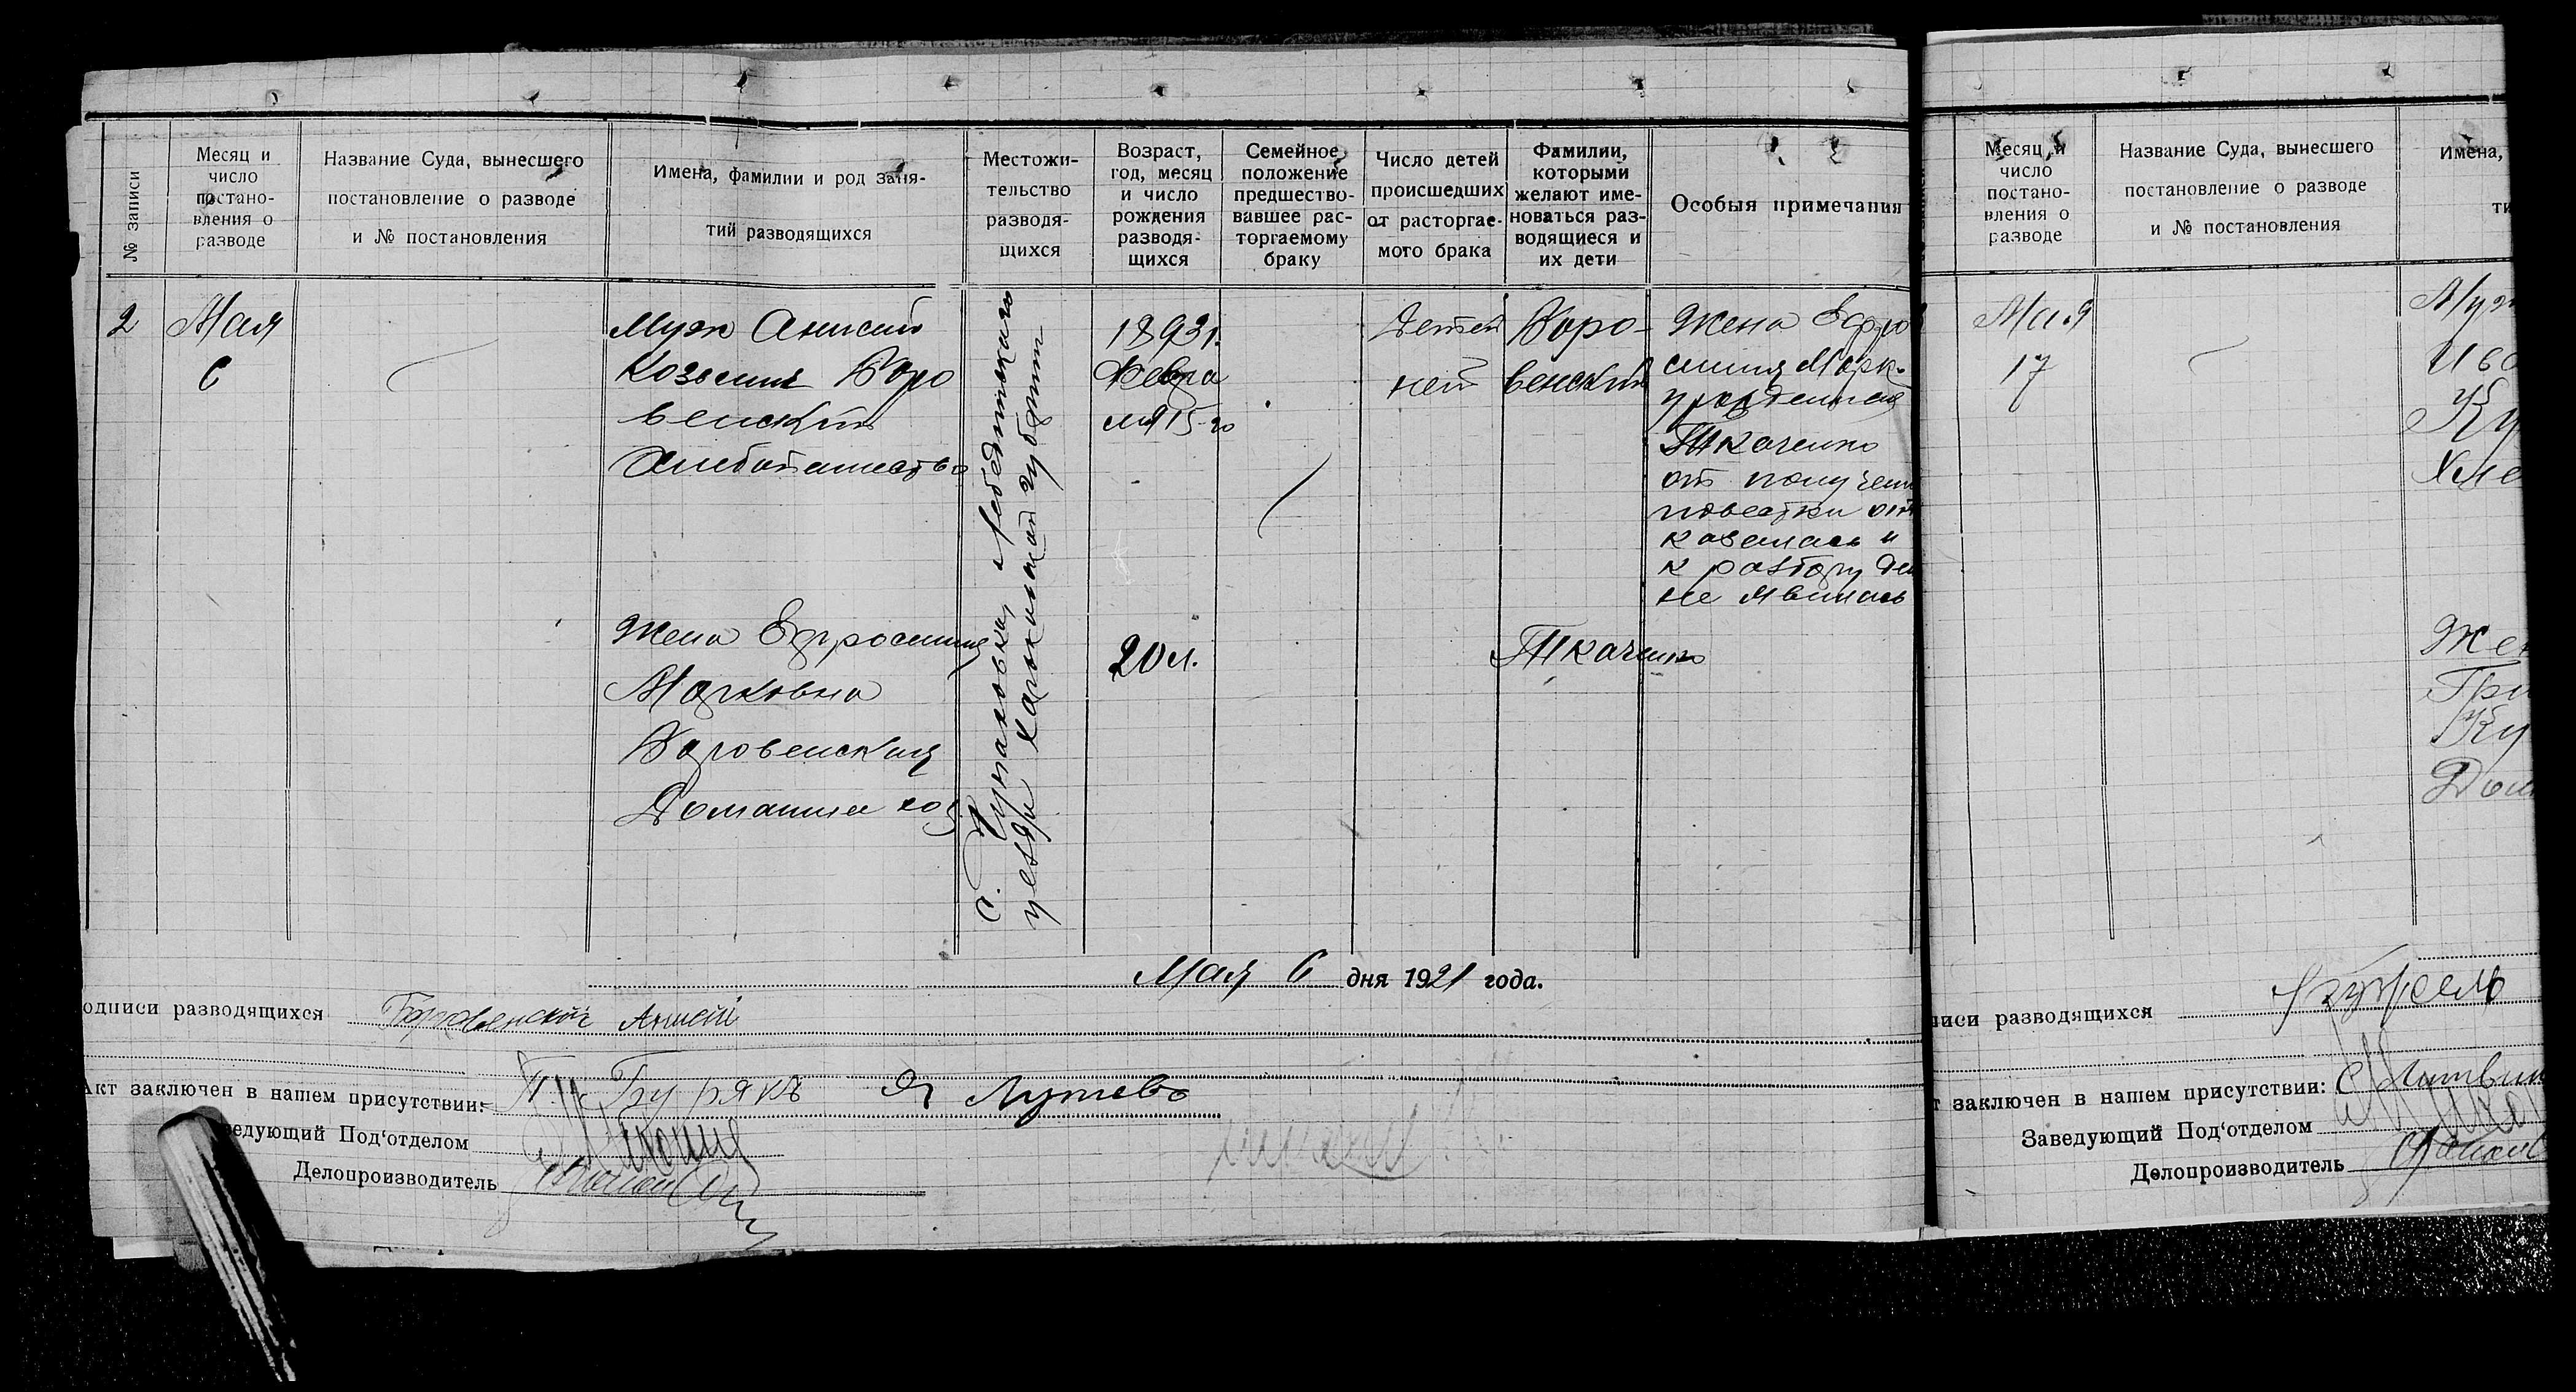 № записи
Месяц и
число
постано-
вления о
разводе
Название Суда, вынесшего
постановление о разводе
и № постановления
Имена, фамилии и род заня-
тий разводящихся
Местожи-
тельство
разводя-
щихся
Возраст,
год, месяц
и число
рождения
разводя-
щихся
Семейное
положение
предшество-
вавшее рас-
торгаемому
браку
Число детей
происшедших
от расторгае-
мого брака
Фамилии,
которыми
желают име-
новаться раз-
водящиеся и
их дети
Особыя примечания
2
Мая
6
Муж Анисий
Козьмич Воро
венский
Хлебопашество
Жена Ефросиния
Марковна
Воровенская
Домашнее хоз
уезда Харьковской губернии
1893г.
Февра
ля 15-го
20 л.
Детей
нет
Воро-
венский
Ткаченко
Жена Ефро
синия Марк.
урожденная
Ткаченко
от получени
повестки от
казалась и
к разбору дел
не явилась
Мая 6 дня 1921 года.
одписи разводящихся Боровенский Анисий
Акт заключен в нашем присутствии: П. Буряк
ведующий Под'отделом
Делопроизводитель
Месяц и
число
постано-
вления о
разводе
Название Суда, вынесшего
постановление о разводе
и № постановления
Имена,
ти
Мая
17
Муж
Ива
Ку
Хле
Жен
Гри
Ку
Дом
писи разводящихся
т заключен в нашем присутствии: С Литвин
Заведующий Под'отделом
Делопроизводитель